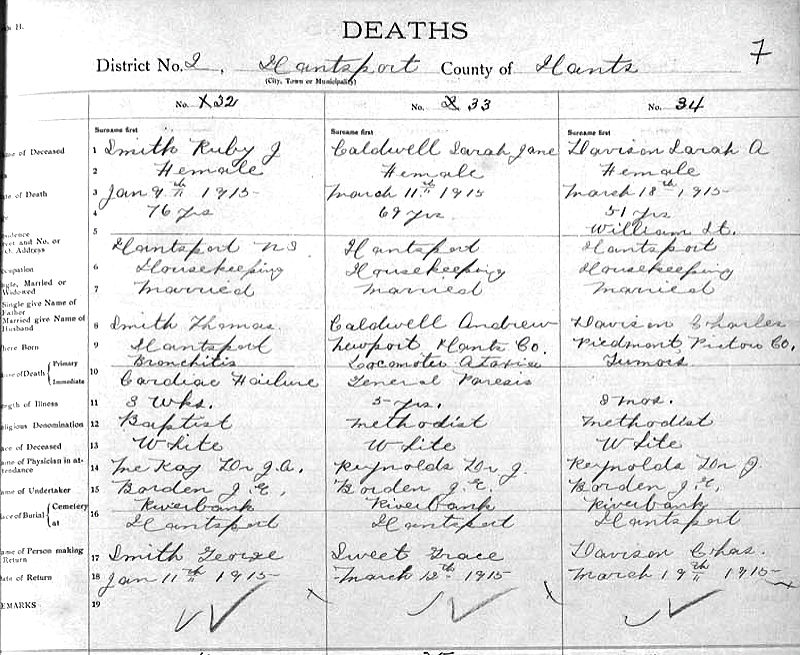 DEATHS
7
District No. 2, Hantsport County of Hants
(City, Town or Municipality)
No. X 32 No. X 33 No. 34
Surname first Surname first Surname first
me of Deceased 1 Smith Ruby J Caldwell Sarah Jane Davison Sarah A
2 Female Female Female
te of Death 3 Jan 9th 1915 March 11th 1915 March 18th 1915
4 76 yrs 69 yrs. 51 yrs
5 William St.
eet and No. or
t. Address Hantsport N S Hantsport Hantsport
ccupation 6 Housekeeping Housekeeping Housekeeping
gle, Married or
Widowed 7 Married Married Married
Single give Name of
Father
Married give Name of
Husband 8 Smith Thomas. Caldwell Andrew Davison Charles
here Born 9 Hantsport Newport Hants Co. Piedmont Pictou Co,
se of Death { Primary Bronchitis Locomoter Ataxia Tumors
Immediate 10 Cardiac Failure General Paresis
ngth of Illness 11 3 Wks. 5 yrs. 8 mos.
ligious Denomination 12 Baptist Methodist Methodist
ce of Deceased 13 White White White
me of Physician in at-
tendance 14 McKay Dr J. A. Reynolds Dr J. Reynolds Dr J.
me of Undertaker 15 Borden J. E. Borden J. E. Borden J. E.
ace of Burial { Cemetery Riverbank Riverbank Riverbank
at 16 Hantsport Hantsport Hantsport
me of Person making
Return 17 Smith George Sweet Grace Davison Chas.
te of Return 18 Jan 11th 1915 March 12th 1915 March 19th 1915
EMARKS 19